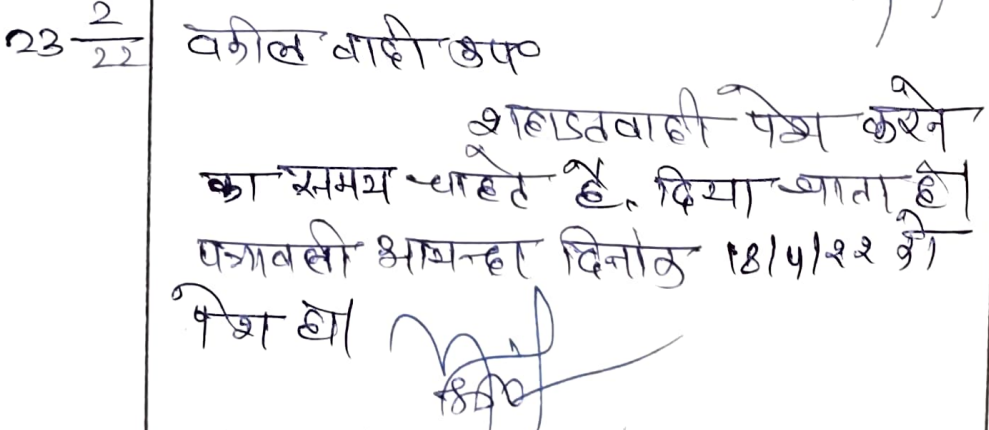 23 2/22 वकील वादी उप०
शहादतवादी पेश करने
का समय चाहते है, दिया जाता है।
पत्रावली आयन्दा दिनांक 18/4/22 को
पेश हो।